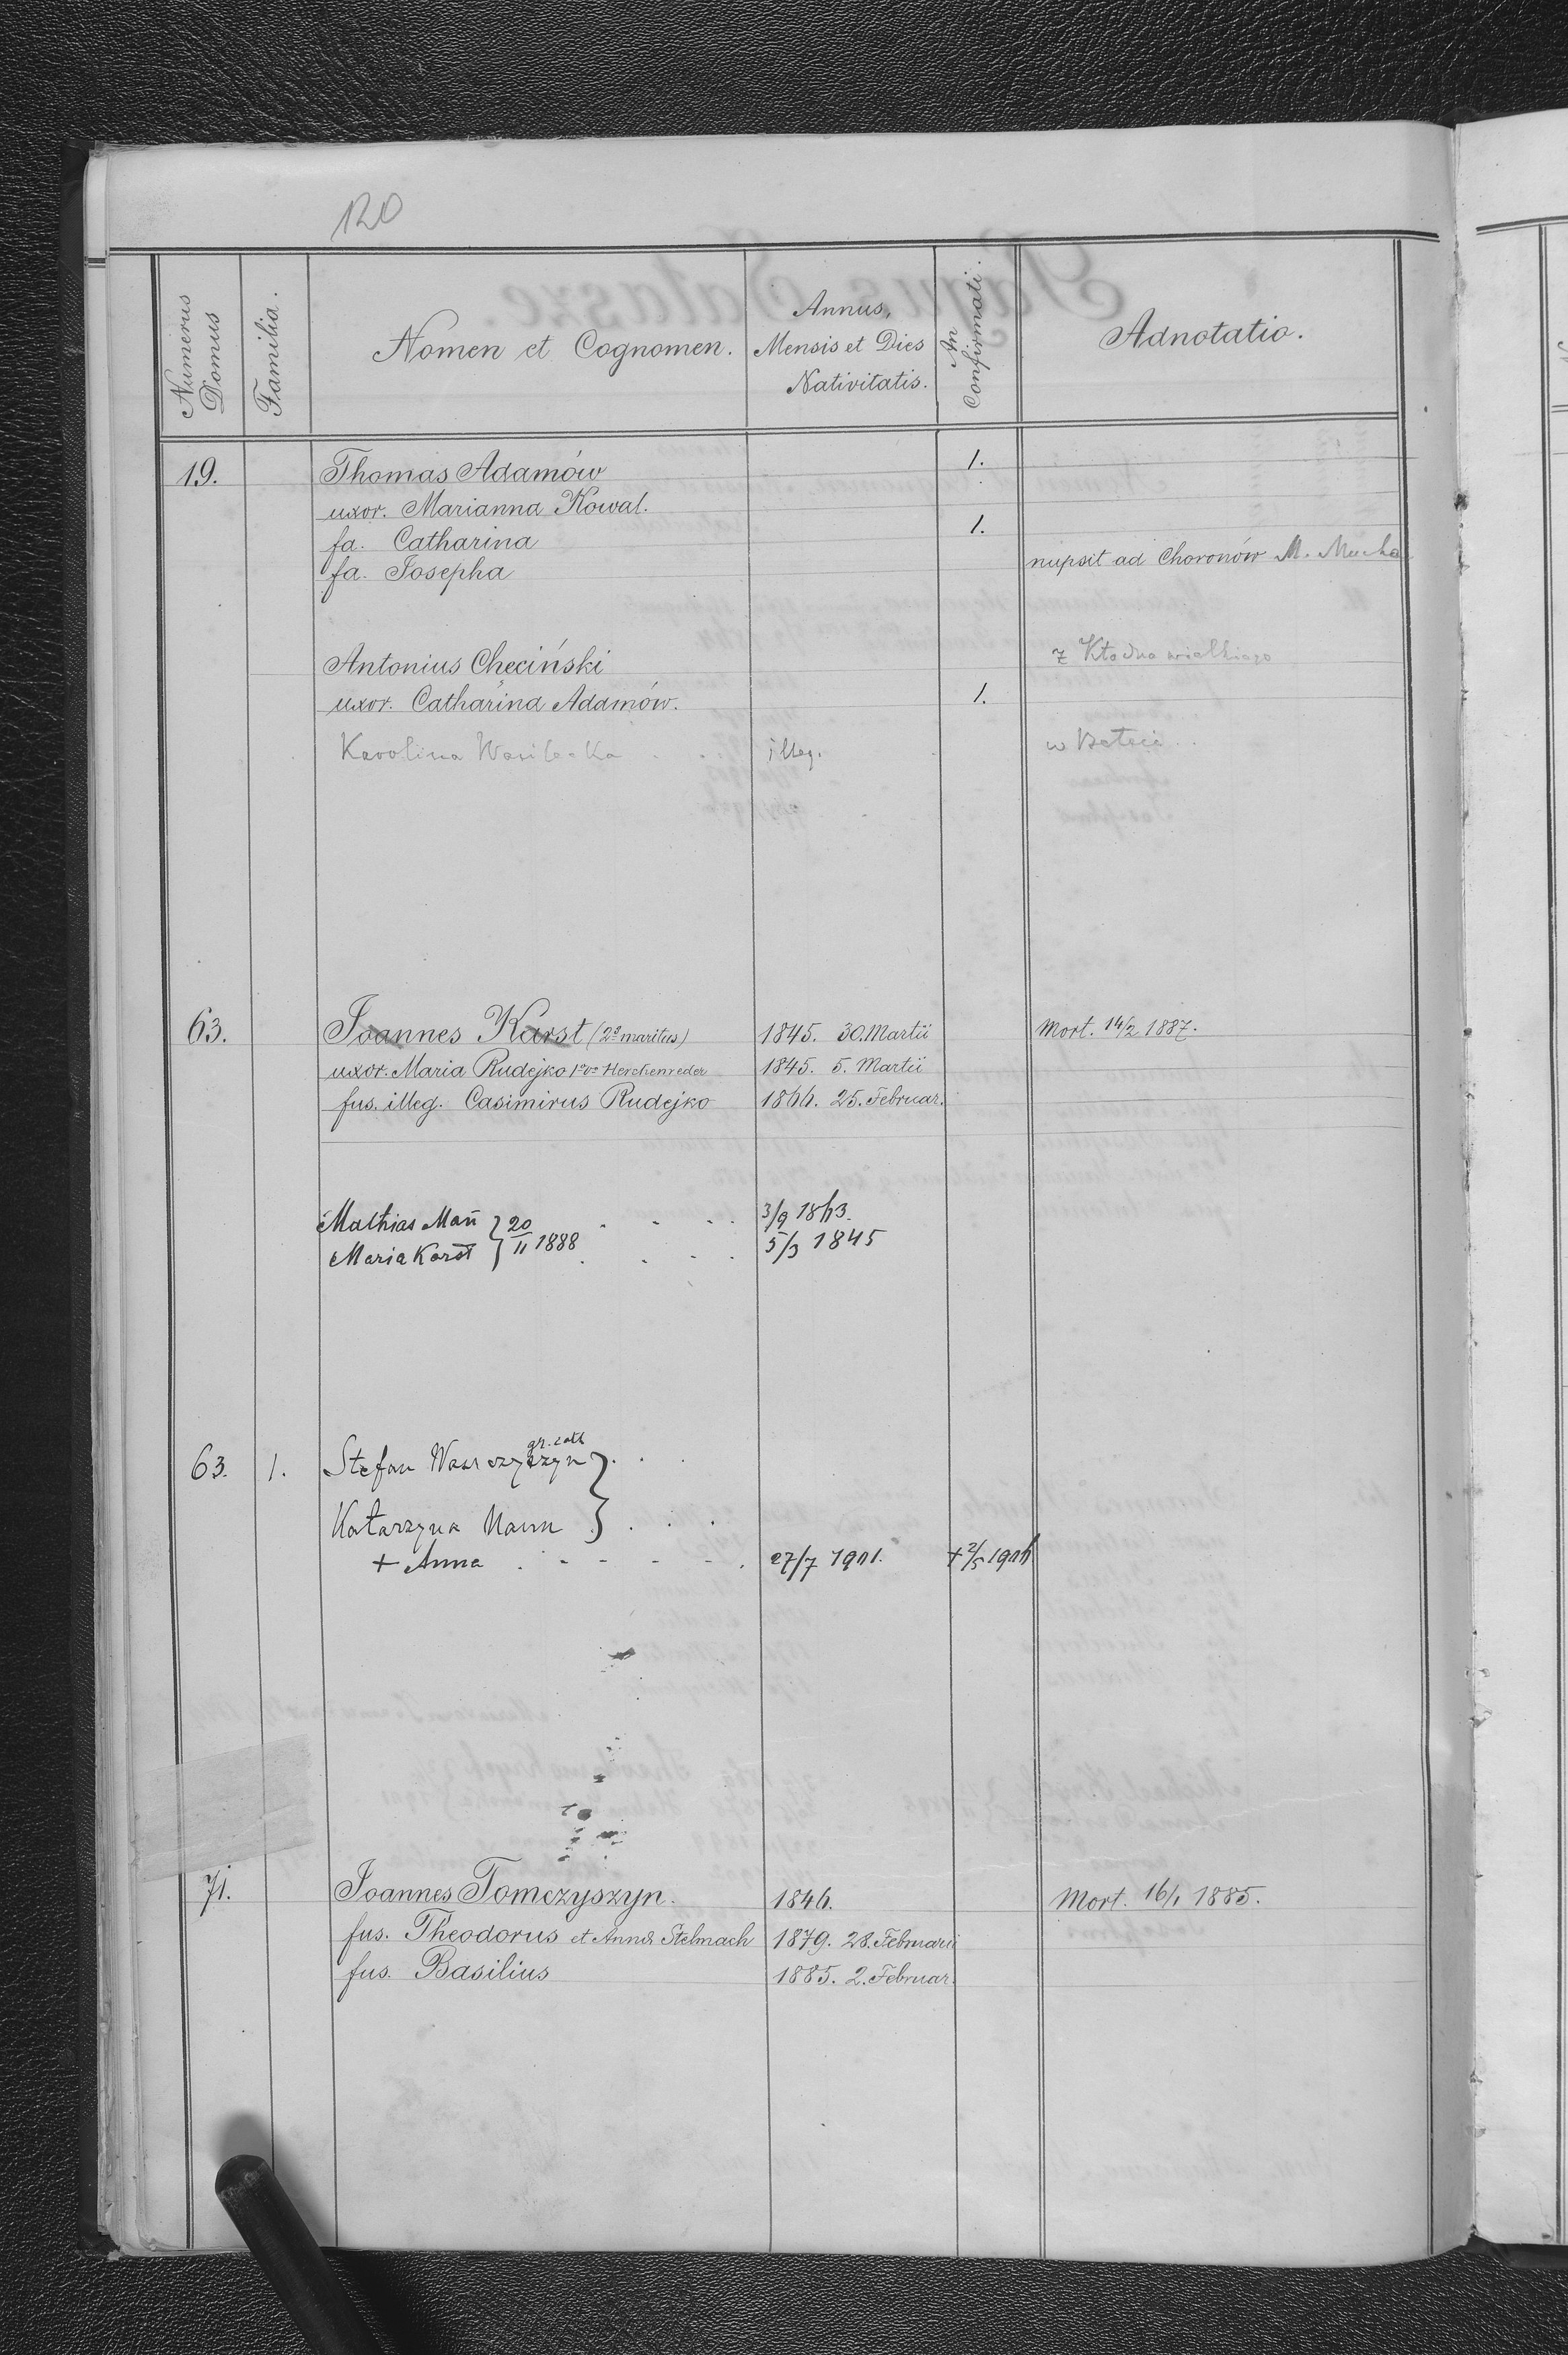 120
Numerus Domus | Familia. | Nomen et Cognomen. | Annus, Mensis et Dies Nativitatis. | An Confirmati. | Adnotatio.
19. Thomas Adamów 1.
uxor. Marianna Kowal.
fa. Catharina 1.
fa. Josepha nupsit ad Choronów M. Mucha
Antonius Checiński z Kłodna wielkiego
uxor. Catharina Adamów. 1.
Karolina illeg. w
63. Joannes Karst (2º maritus) 1845. 30. Martii Mort. 14/2 1887.
uxor. Maria Rudejko 1º vº Herchenreder 1845. 5. Martii
fus. illeg. Casimirus Rudejko 1866. 25. Februar.
Mathias Mań } 20/11 1888 3/9 1863.
Maria Karst } 5/3 1845
gr. cath
63. 1. Stefan }
Katarzyna }
+ Anna 27/7 1901. + 2/5 1906
71. Joannes Tomczyszyn. 1846. Mort. 16/1 1885.
fus. Theodorus et Anna Stelmach 1879. 28. Februarii
fus. Basilius 1885. 2. Februar.